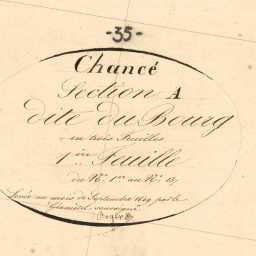 -35-
Chancé
Section A
dite du Bourg
en trois Feuilles
1ère Feuille
du Nº 1er au Nº
Levée au mois de Septembre par le
Géomètre soussigné